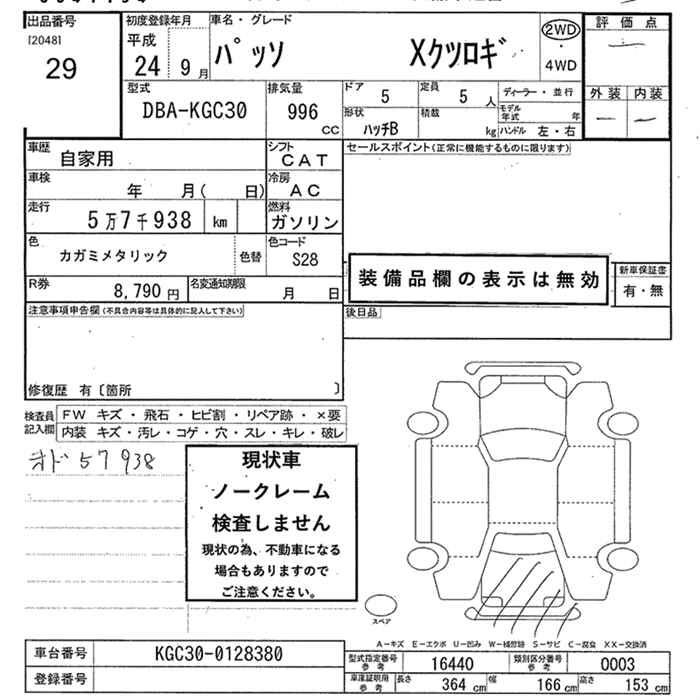 出品番号
[2048]
29
初度登録年月
平成
24 9月
車名・グレード
パッソ Xクツロギ
2WD
・
4WD
評価点
一
外装 内装
一 一
型式
DBA-KGC30
排気量
996
cc
ドア 5
定員 5 人
ディーラー・並行
形状
ハッチB
積載 kg
モデル年式 年
ハンドル 左・右
車歴 自家用
シフト
CAT
セールスポイント(正常に機能するものに限ります)
車検 年 月( 日)
冷房
AC
走行 5万7千938 km
燃料
ガソリン
色 カガミメタリック 色替
色コード
S28
装備品欄の表示は無効
新車保証書
有・無
R券 8,790円
名変通知期限 月 日
注意事項申告欄(不具合内容等は具体的に記入して下さい)
後日品
修復歴 有〔箇所 〕
検査員記入欄
FW キズ・飛石・ヒビ割・リペア跡・×要
内装 キズ・汚レ・コゲ・穴・スレ・キレ・破レ
オド 57938
現状車
ノークレーム
検査しません
現状の為、不動車になる
場合もありますので
ご注意ください。
スペア
A-キズ E-エクボ U-凹み W-補修跡 S-サビ C-腐食 XX-交換済
車台番号 KGC30-0128380
型式指定番号参考 16440
類別区分番号参考 0003
登録番号
車庫証明用参考 長さ 364 cm 幅 166 cm 高さ 153 cm